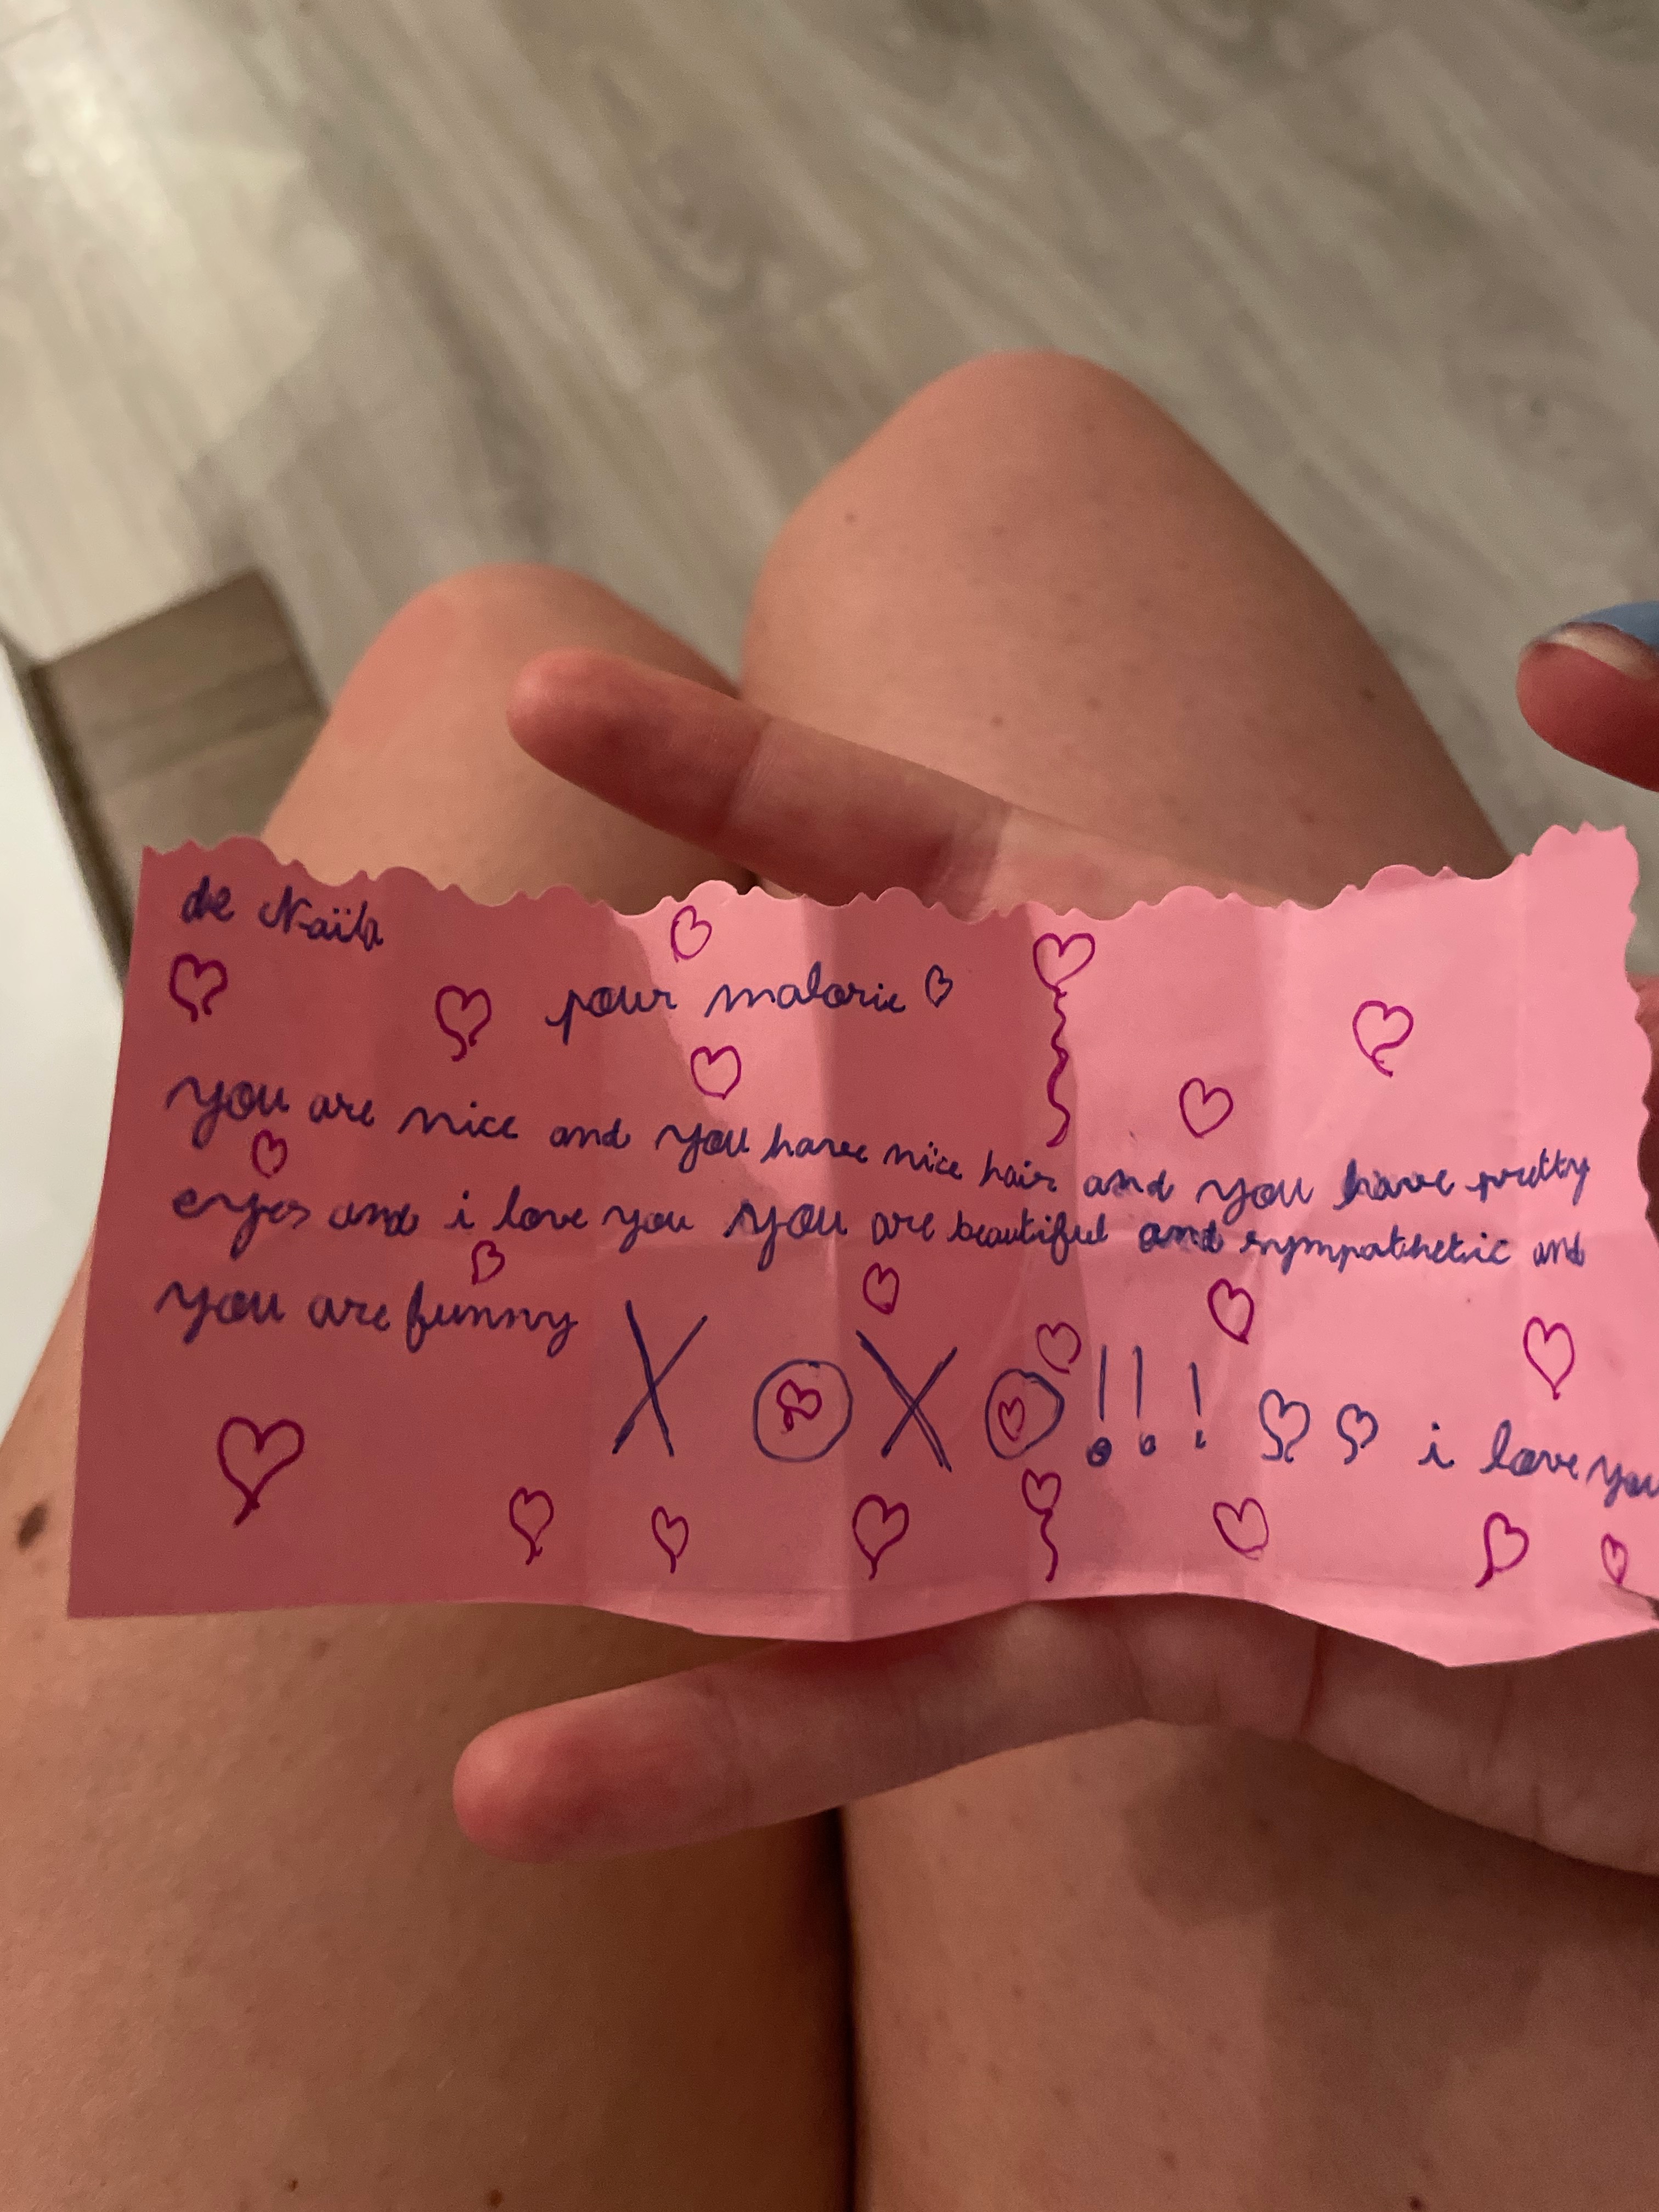 de Naïla
pour malorie
you are nice and you have nice hair and you have pretty
eyes and i love you you are beautiful and sympathetic and
you are funny
XOXO!!! i love you